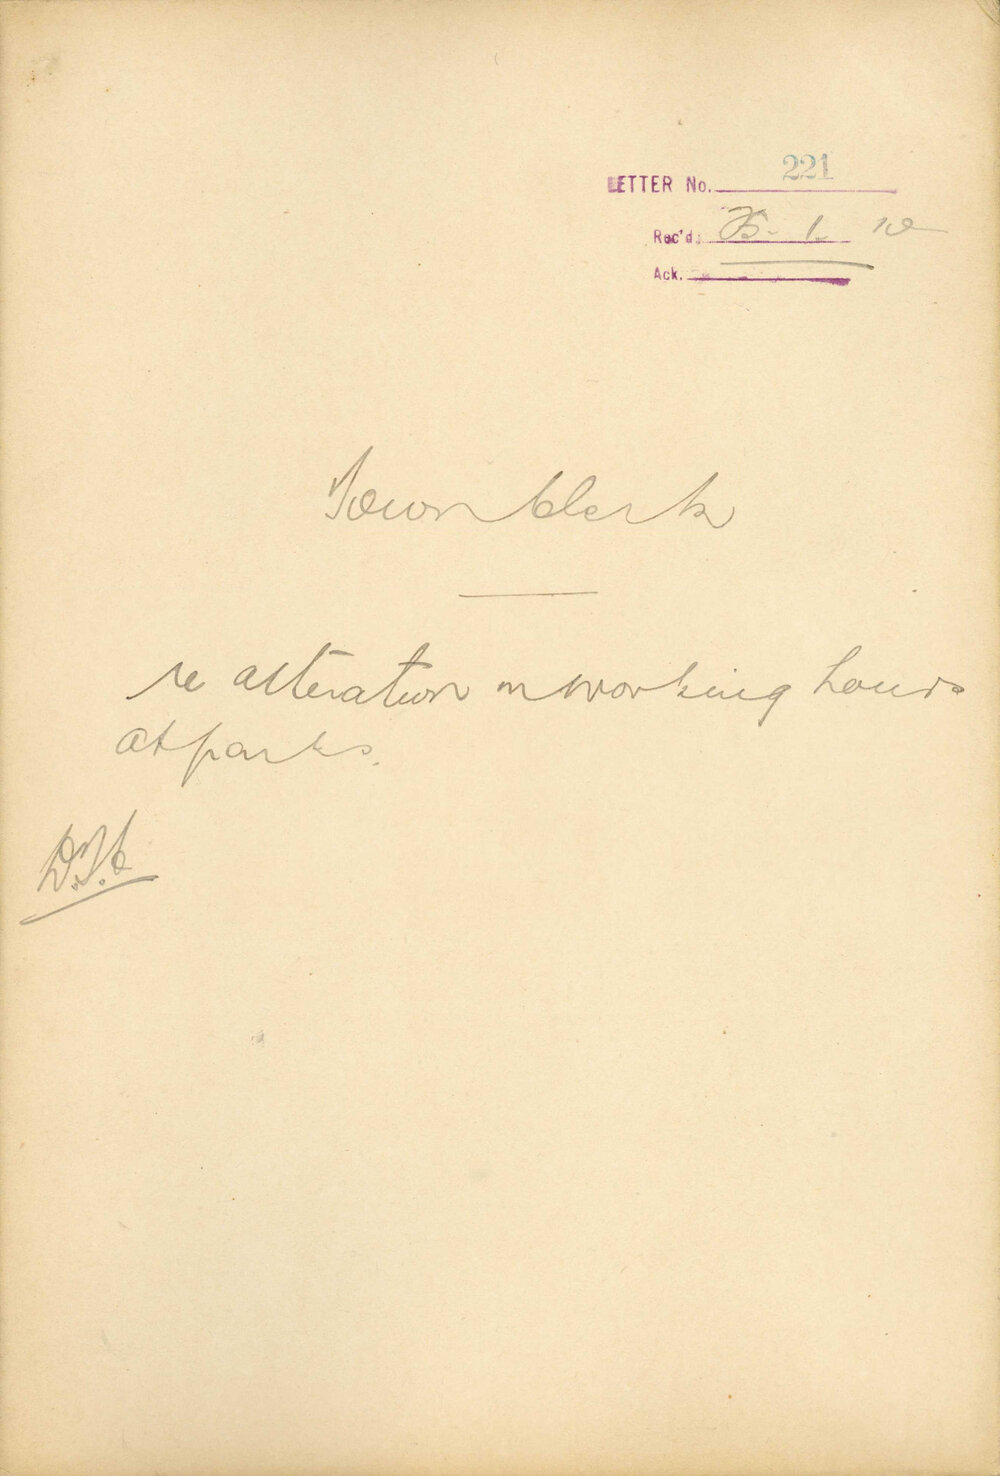 LETTER No. 221
Rec'd: 25-1-10
Ack.
Town Clerk
re alteration in working hours
at parks.
D.T.C